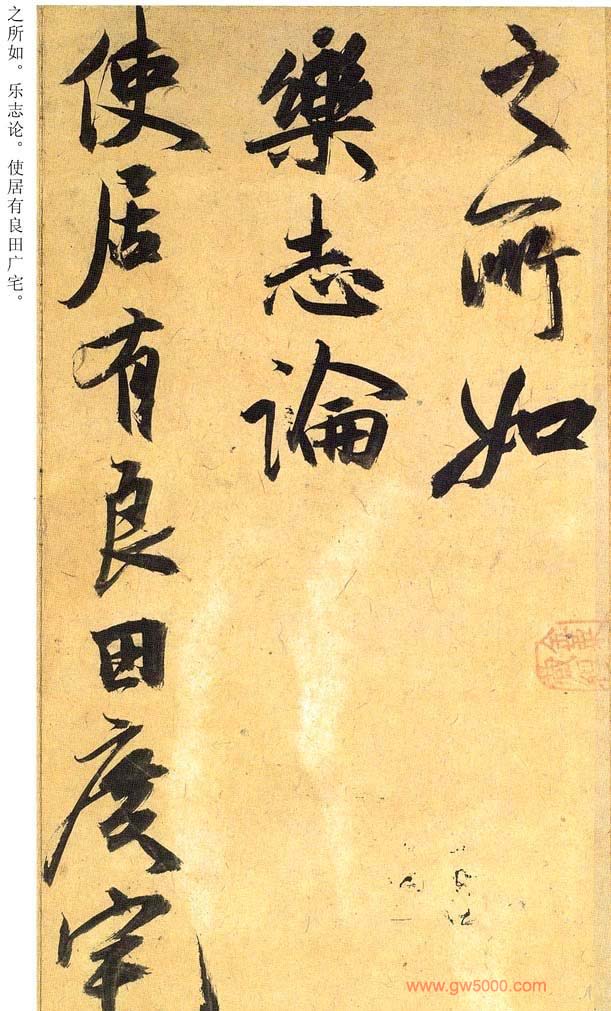 之所如
樂志論
使居有良田廣宅
之所如。乐志论。使居有良田广宅。
www.gw5000.com